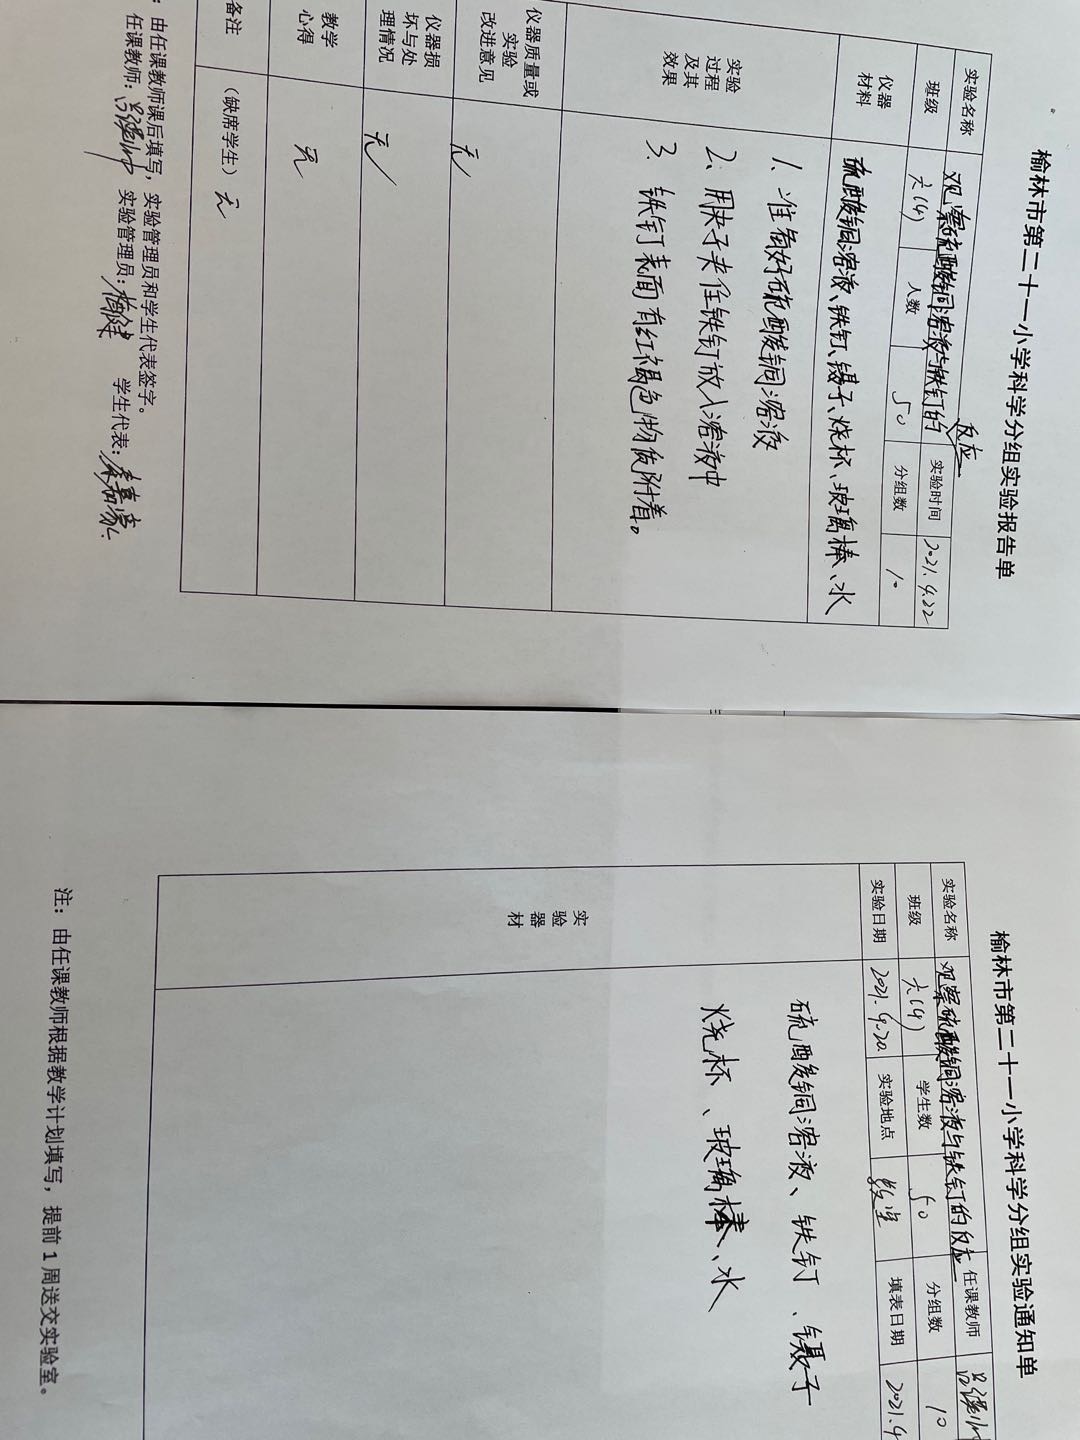 榆林市第二十一小学科学分组实验报告单
实验名称 观察硫酸铜溶液与铁钉的反应 实验时间 2021.4.22
班级 六(4) 人数 50 分组数 10
仪器材料 硫酸铜溶液、铁钉、镊子、烧杯、玻璃棒、水
实验过程及其效果
1. 准备好硫酸铜溶液
2. 用夹子夹住铁钉放入溶液中
3. 铁钉表面有红褐色物质附着。
仪器质量或实验改进意见 无
仪器损坏与处理情况 无
教学心得 无
备注 (缺席学生) 无
：由任课教师课后填写，实验管理员和学生代表签字。
任课教师: 实验管理员: 学生代表:
榆林市第二十一小学科学分组实验通知单
实验名称 观察硫酸铜溶液与铁钉的反应 任课教师
班级 六(4) 学生数 50 分组数 10
实验日期 2021.4.20 实验地点 教室 填表日期 2021.4
实验器材
硫酸铜溶液、铁钉、镊子
烧杯、玻璃棒、水
注：由任课教师根据教学计划填写，提前1周送交实验室。